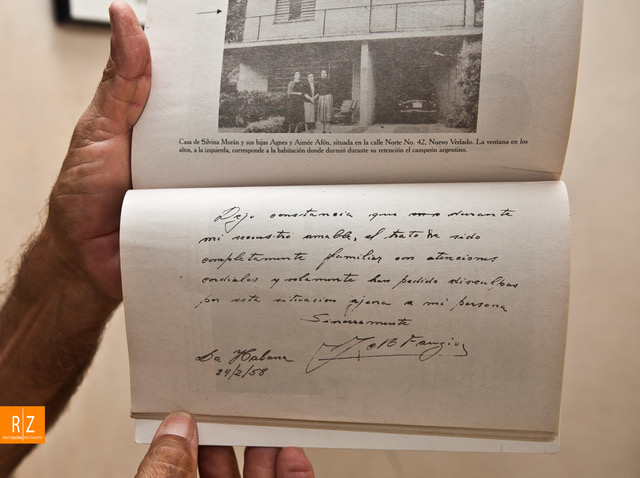 Casa de Silvina Morán y sus hijas Agnes y Aimée Afón, situada en la calle Norte No. 42, Nuevo Vedado. La ventana en los
altos, a la izquierda, corresponde a la habitación donde durmió durante su retención el campeón argentino.
Dejo constancia que durante
mi secuestro amable, el trato ha sido
completamente familiar con atenciones
cordiales y solamente han pedido disculpas
por esta situacion ajena a mi persona
Sinceramente
La Habana
24/2/58
Fangio
R|Z